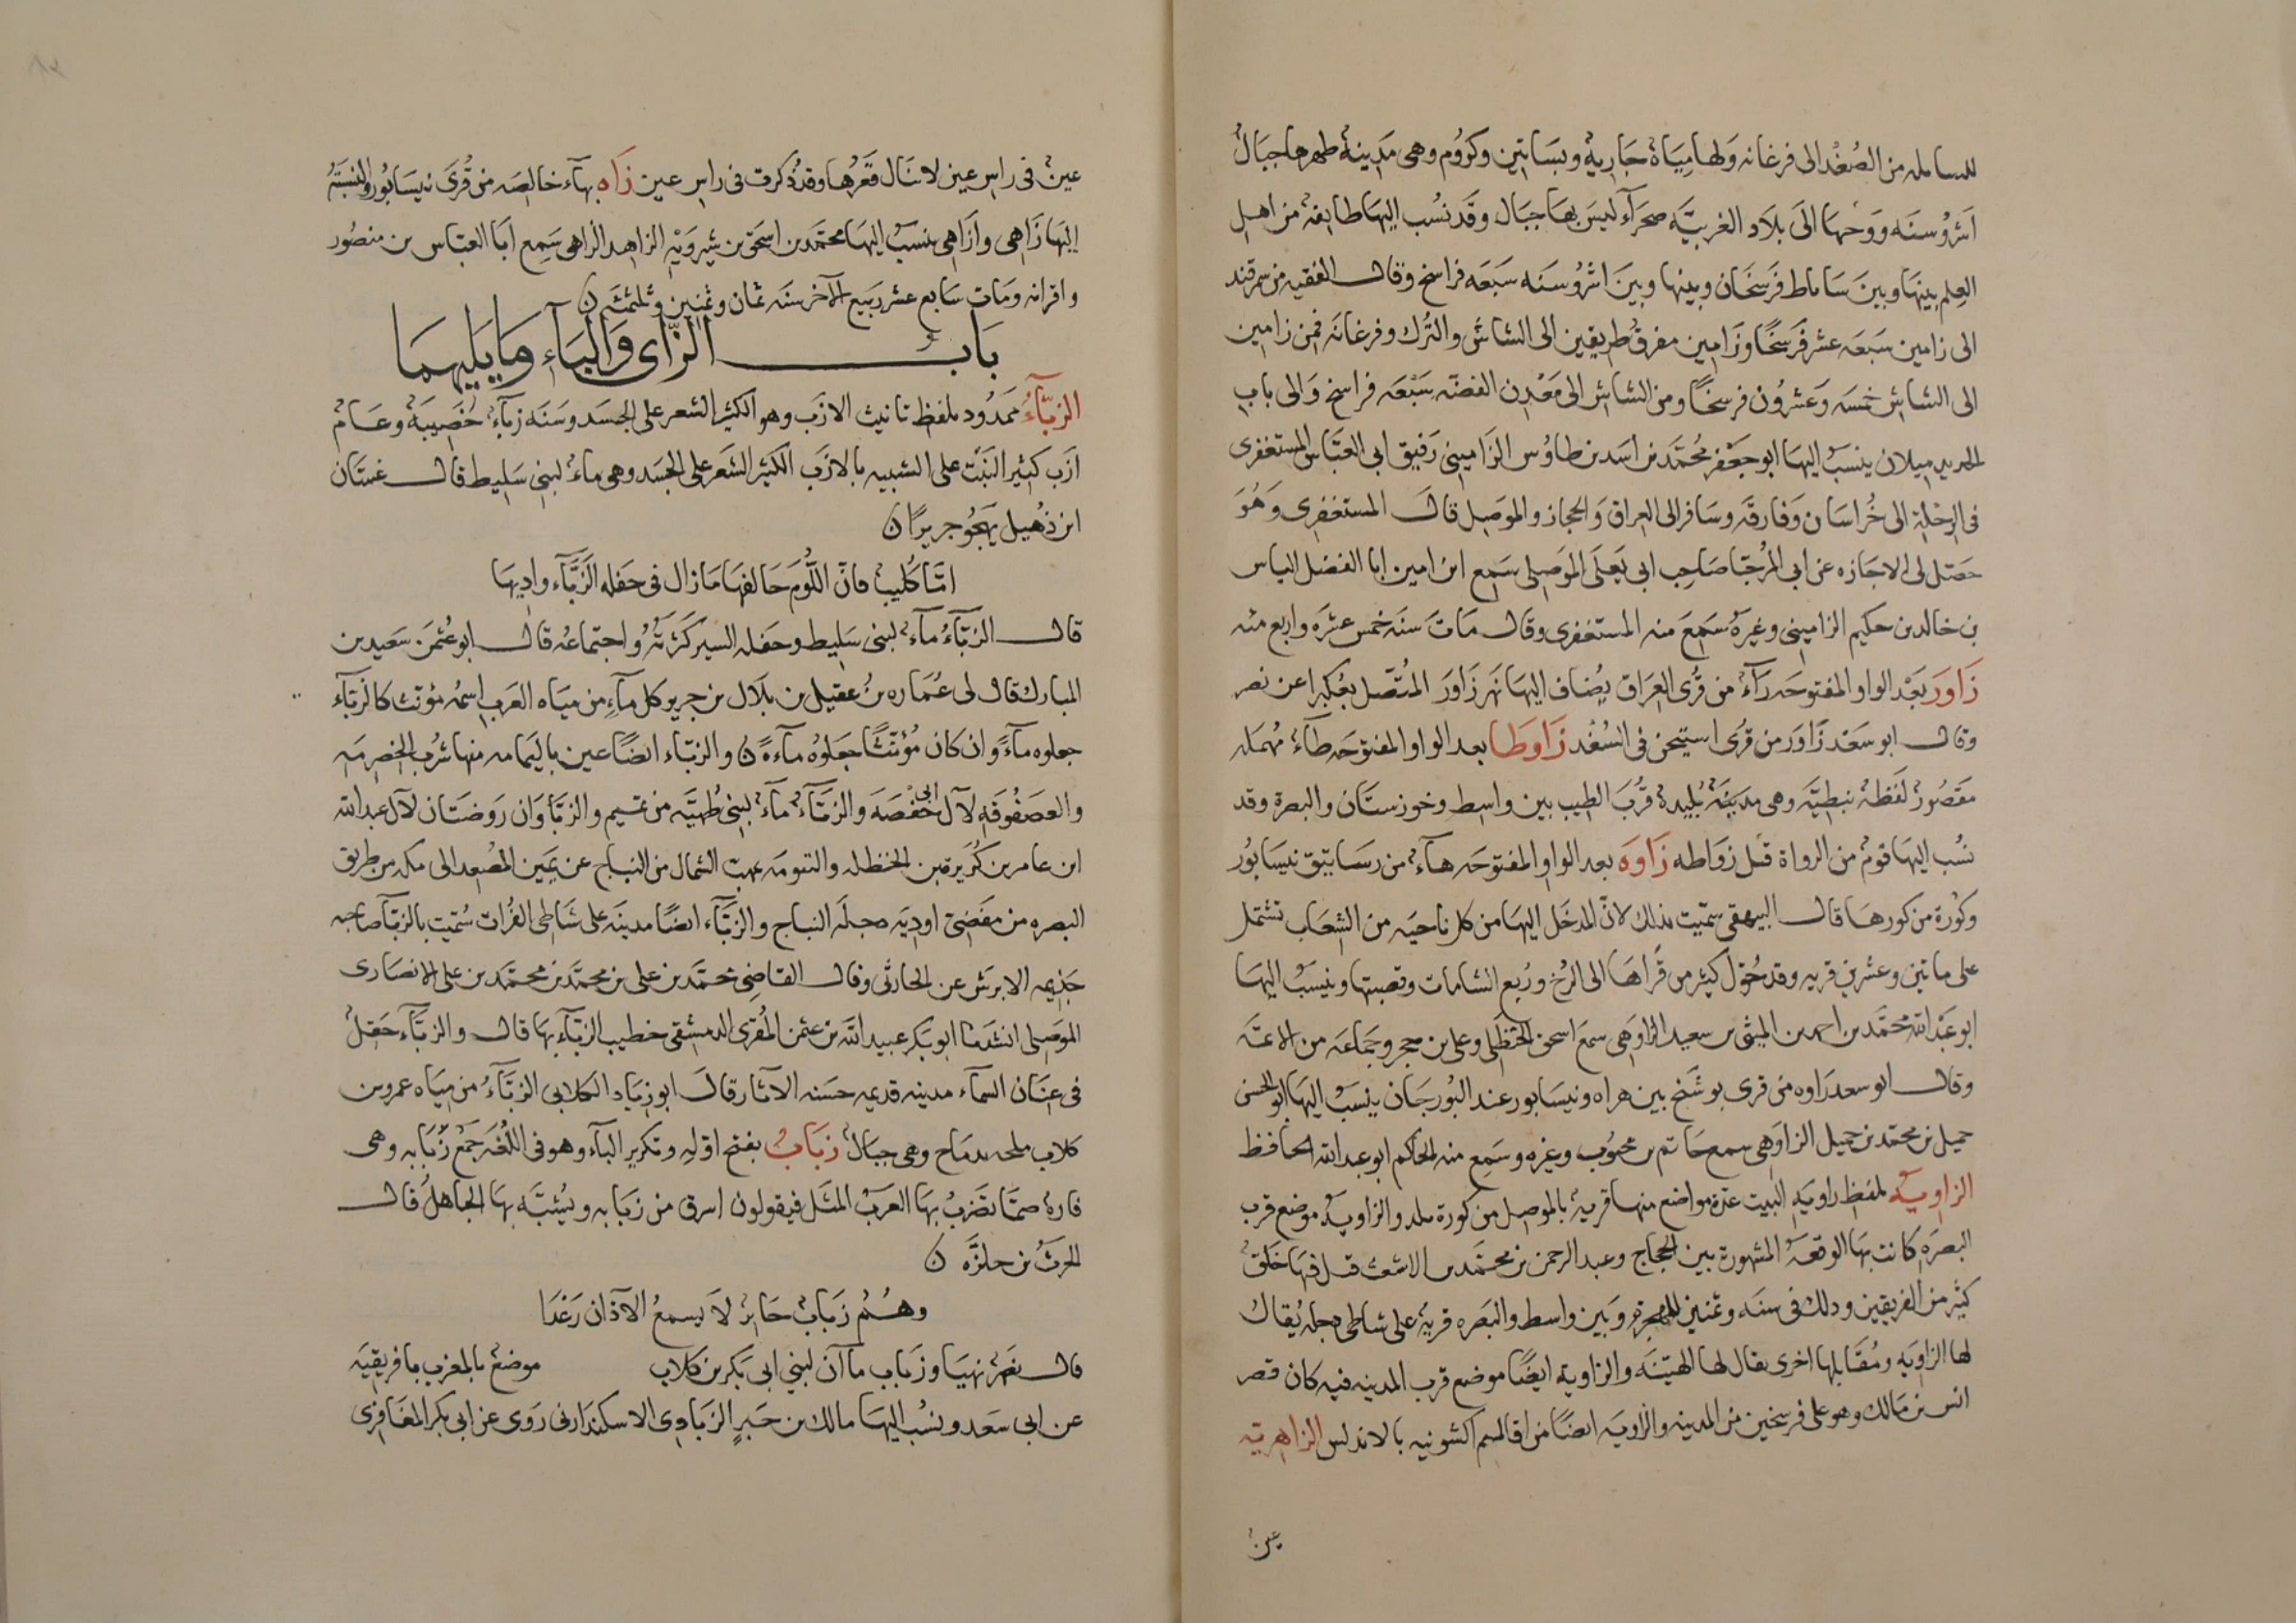 للسامله من الصُغْد الى فرغانه وَلها مِيَاهٌ جَارِيةٌ وبسَاتين وكرُوم وهى مَدِينةٌ ظهرها جبَالُ
اَشرُوْسنَه وَوَجْهَا الىَ بلاَد الغربيَّه صحرَآء ليسَ بها جبَال وقَد نسُب اليهَا طايفةٌ من اهل
العِلم بينهَا وبينَ سَاباط فَرسَخَان وبينها وبينَ اشرُوْسَنه سَبعَه فراسخ وقال الفقيه من سمرقند
الى زامين سَبعَه عشر فَرسَخًا وزَامِين مفرق طريقين الى الشاش والتُرك وفرغانَه فمن زامين
الى الشاش خمسَه وَعشرُون فرسخًا ومن الشاش الى مَعْدِن الفضّه سَبْعَه فراسخ وَالى باب
الحديد ميلان ينسَبُ اليهَا ابو جعَفر محُمّد بن اسَد بن طاوُس الزَاميني رَفيق ابى العَبّاس المستغفرى
فى الرحْلة الى خُراسَان وَفارقَه وسَافر الى العراق وَالحجاز والموَصِل قالَ المستغفرى وَهُوَ
حصّل لى الاجَازه عن ابى المُرَجّا صَاحِب ابى يَعلَى الموَصِلى سَمِع ابن امين ابا الفضل الياس
بن خالد بن حكيم الزاميني وغيرهُ سَمِعَ منه المستغفرى وقال مَاتَ سنَه خمس عشرَه واربع مئه
زَاوَر بَعْد الواو المفتوحَه رآءٌ من قرُى العَرَاق يُضاف اليهَا نَهر زَاوَر المُتّصل بعُكبرا عن نصر
وقال ابو سَعَد زَاوَر من قرُى اسِتيخن فى السُغْد زَاوَطا بعد الواو المفتوحَه طآءٌ مُهمَله
مَقصُورٌ لَفَظةٌ نبطِيّه وهى مدينةٌ بُليدةٌ قرُبَ الطيب بين واسط وخوزستَان والبصرة وقد
نسُب اليهَا قومٌ من الرواة قيل زوَاطه زَاوَه بعد الواو المفتوحَه هآءٌ من رسَاتيق نيسَابُور
وكوُرة من كورهَا قال البيهقى سمّيت بذلك لانّ المدخَل اليهَا من كل ناحيَه من الشِعَاب تشتمل
على ماتين وعشرين قريه وقد حُوّل كثير من قُراهَا الى الرُخ ورُبع الشامات وقصبتها وينسَبُ اليهَا
ابو عَبْد الله محمّد بن احمد بن المثنى بن سعيد الزاوَهى سمَع اسحق الحنظَلى وعلى بن حجر وجَماَعَه من الائمّه
وقال ابو سعد زَاوه من قرى بوشَنج بين هراه ونيسَابور عند البُورجَان ينسَبُ اليهَا ابو الحسن
جميل بن محمّد بن جميل الزاوَهى سمع حَاتم بن محبُوب وغيره وسَمِع منه الحاكم ابو عبد الله الحافظ
الزاويّه بلفظ زاويَةِ البيت عدّة مواضع منها قريةٌ بالموصل من كورة بلد والزاويةُ موضع قرب
البصرَه كانت بهَا الوقعَةُ المشهورة بين الحجاج وعبد الرحمن بن محمّد بن الاشعث قُتل فيهَا خَلقٌ
كثير من الفريقين وذلك فى سنَه وثمنين للهجرة وَبين واسط والبَصره قريةٌ على شاطى دجله يُقال
لها الزاويَه ومُقَابلها اخرى يقال لها الهَنِيّه والزاويه ايضًا موضع قرب المدينه فيه كان قصر
انس بن مَالك وهو على فرسخين من المدينه والزاويه ايضًا من اقاليم اكشونيه بالاندلس الزاهريّه
عينٌ
عينٌ فى راس عين لا تنَال قعَرهَا وقد ذُكرت فى راسِ عين زَاه بهآء خالصَه من قرُى نيسَابُور والنسبَةُ
اليَها زَاهى وآزَاهى ينسَبُ اليهَا محمّد بن اسحٰق بن شيرَويَه الزاهد الزاهى سَمِع ابَا العبّاس بن منصُور
واقرانه ومَات سَابع عشر ربَيع الآخر سنَه ثمان وثمنين وثلثمئه ن
بَابُ الزّاى وَالبَآءِ وَمَا يَليهمَا
الزبّآءُ ممَدُود بلفظ تانيث الازَب وهو الكثير الشعر على الجسَد وسَنَه زبّآءُ خَصِيبَةٌ وعَامٌ
ازَب كثير النَبْت على التشبيه بالازَب الكثير الشعَر على الجسَد وهى ماءٌ لبنى سَلِيط قال غسّان
ابن ذُهيل يَهجُو جريرًا ن
امّا كُليبٌ فانّ اللُؤمَ حَالفهَا مَا زال فى حَفله الزَبَّآء واديهَا
قال الزبّآءُ مآءٌ لبنى سَلِيط وحَفله السير كَثرتُهُ واجتماعُه قال ابو عُثمنَ سَعيد بن
المبارك قال لى عُمَاره بنُ عقيل بن بلاَل بن جرير كل مآءٍ من ميَاه العَرب اسمُه مؤنث كالزبّآء
جعلوه مآءً وان كان مُؤنثًا جَعلوُه مآءةً ن والزبّاء ايضًا عين باليمامه منها شرُب الخِضرمَه
والعصَفُوقَهِ لآل ابى حَفصَهَ والزبَّآءُ مآءٌ لبنى طُهيَّه من تميم والزبّاوَان رَوضَتَان لآل عبد الله
ابن عامر بن كُرَيز من الحنظله والتنومَه بمهبّ الشمال من النباج عن يَمين المُصْعد الى مكه من طريق
البصره من مَفضى اودِيَه حلَة النباج والزبَّآء ايضًا مدينَه على شَاطى الفُرات سُمّيت بالزبّآ صَاحبه
جَذيمه الابرَش عن الحازمى وقال القاضِى محمّد بن على بن محمّد بن محمّد بن على الانصَارى
الموَصلى انشدَنا ابو بَكر عبيد الله بن عثمن المُقرى الدمشقى خطيب الزبّآء بهَا قال والزبَّآء حَقلٌ
فى عنَان السمآء مدينه قديمه حسَنه الآثار قالَ ابو زيَاد الكلابى الزبَّآءُ من ميَاه عمرو بن
كلاب ملحه بدمَاح وهى جبَالٌ زبَابٌ بفتح اوّلهِ وتكرير البآء وهو فى اللُغَه جَمْع زَبَابه وهى
فارة صمّا تضَربُ بهَا العرَبُ المثَل فيقولون اسرق من زبَابه ويُشبَّه بهَا الجاهلُ قال
الحرثُ بن حلزَّه ن
وهُمُ زَبابٌ حَائِر لاَ يسمعُ الآذان رَعَدا
قال نصَر نهيَا وزبَاب مآآن لبنى ابى بَكر بن كلاب موضعٌ بالمغرب بافريقيَه
عن ابى سَعَد ونسُب اليهَا مالك بن حَبرٍ الزبَادِى الاسكندرانى رَوى عن ابى بكر المعَافِرى